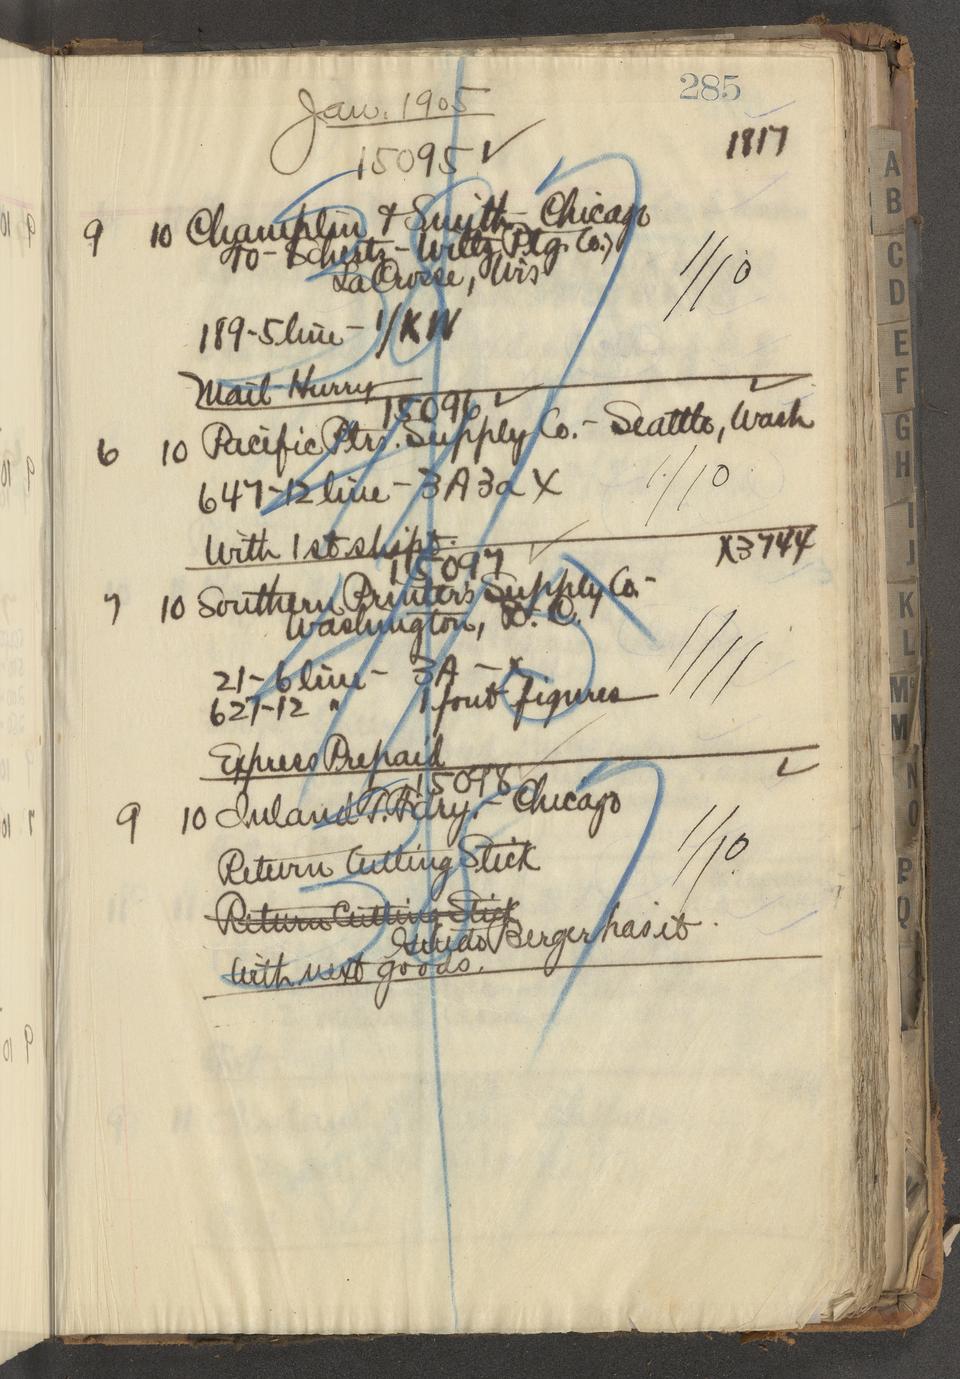 285
Jan. 1905
1817
15095 ✓
9 10 Champlin & Smith - Chicago
To - Schertz - Willy Ptg. Co.,
La Crosse, Wis
1/10
189-5 line - 1/K
Mail Hurry
15096 ✓
6 10 Pacific Ptrs. Supply Co. - Seattle, Wash
647-12 line - 3A3a X
1/10
With 1st shipt.
X3744
15097
7 10 Southern Printer's Supply Co. -
Washington, D.C.
21-6 line - 3A - X
1/11
627-12 " 1 font figures
Express Prepaid
15098
9 10 Inland T. Fdry. - Chicago
Return Cutting Stick
1/10
Return Cutting Stick
Berger has it.
With next goods.
A
B
C
D
E
F
G
H
I
J
K
L
Mc
M
N
O
P
Q